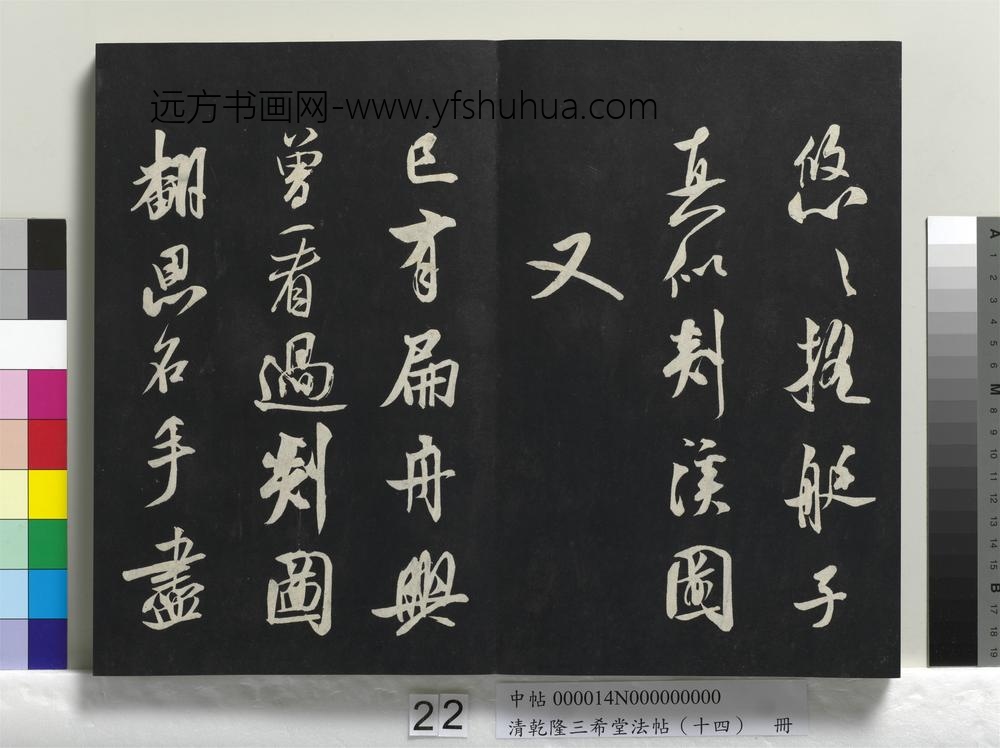 远方书画网-www.yfshuhua.com
悠〻搖艇子
真似剡溪圖
又
已有扁舟興
曾看過剡圖
翻思名手盡
22
中帖 000014N000000000
清乾隆三希堂法帖（十四） 冊
A 1 2 3 4 5 6 M 8 9 10 11 12 13 14 15 B 17 18 19